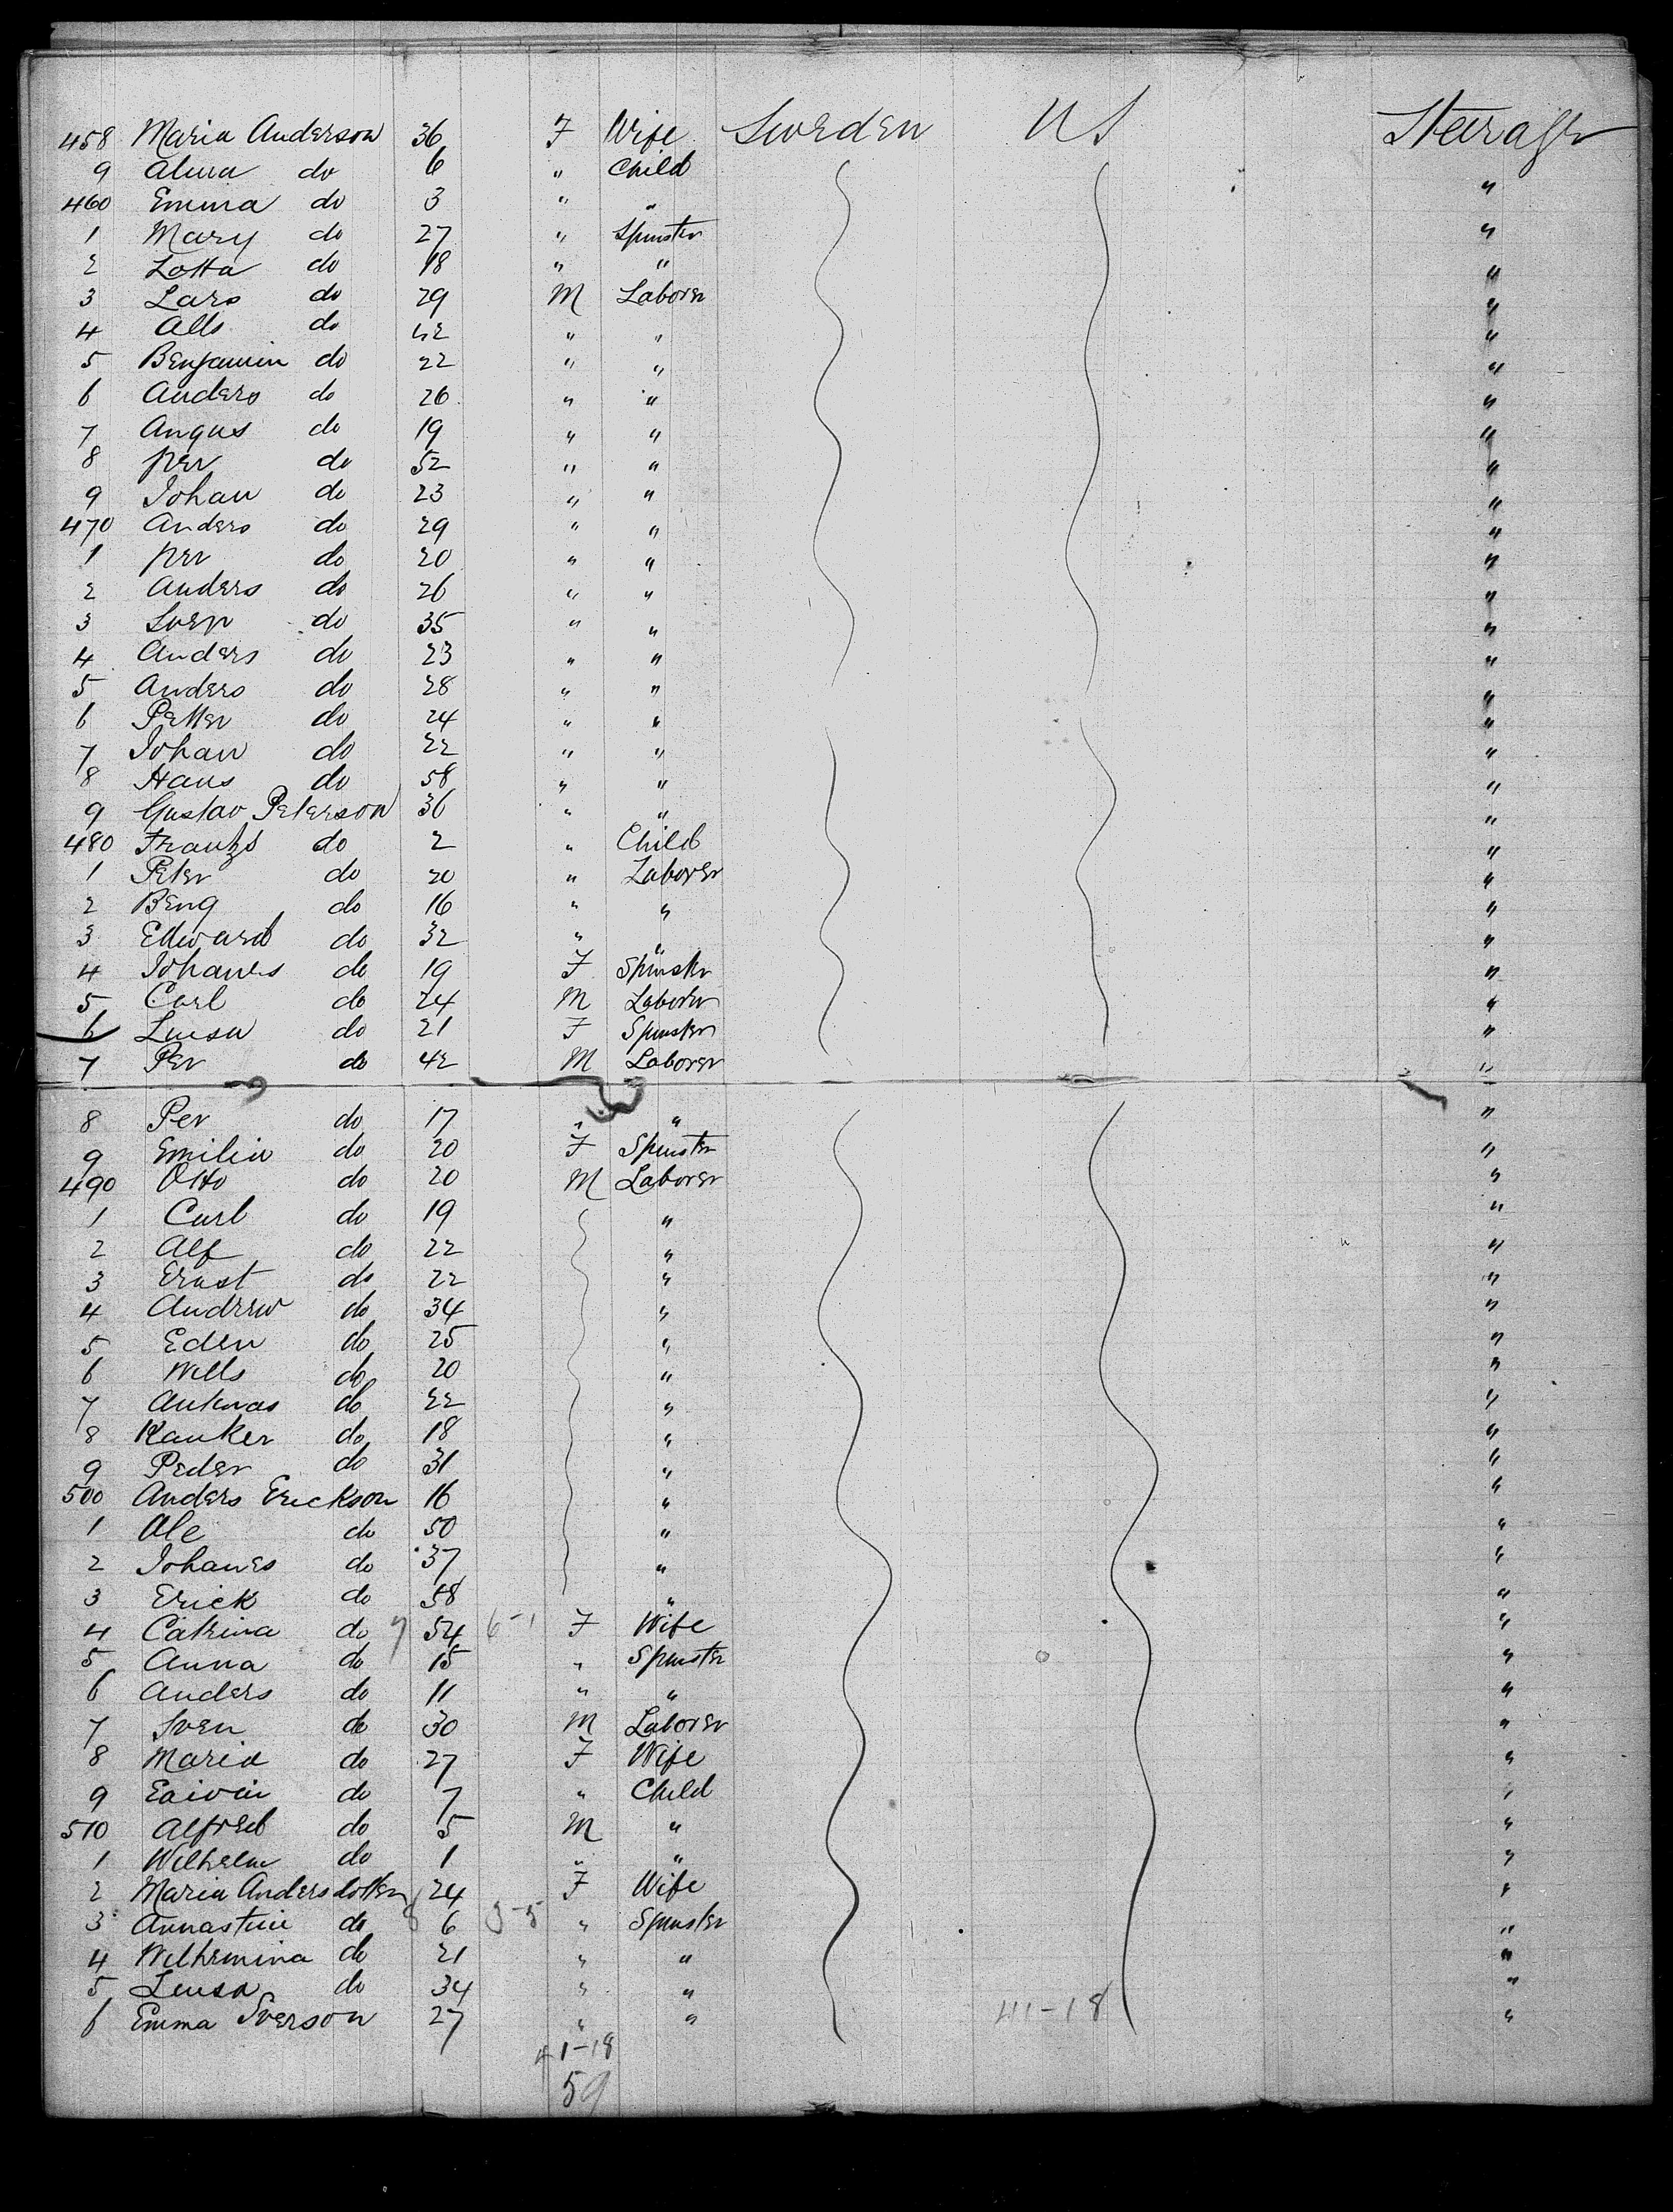 458 Maria Anderson 36 F Wife Sweden US Steerage
9 Alma do 6 " Child "
460 Emma do 3 " " "
1 Mary do 27 " Spinster "
2 Lotta do 18 " " "
3 Lars do 29 M Laborer "
4 Alls do 42 " " "
5 Benjamin do 22 " " "
6 Anders do 26 " " "
7 Angus do 19 " " "
8 Per do 52 " " "
9 Johan do 23 " " "
470 Anders do 29 " " "
1 Per do 20 " " "
2 Anders do 26 " " "
3 Sven do 35 " " "
4 Anders do 23 " " "
5 Anders do 28 " " "
6 Petter do 24 " " "
7 Johan do 22 " " "
8 Hans do 58 " " "
9 Gustav Peterson 36 " " "
480 Frantzs do 2 " Child "
1 Peter do 20 " Laborer "
2 Beng do 16 " " "
3 Edward do 32 " " "
4 Johanes do 19 F Spinster "
5 Carl do 24 M Laborer "
6 Luisa do 21 F Spinster "
7 Per do 42 M Laborer "
8 Per do 17 " " "
9 Emilia do 20 F Spinster "
490 Otto do 20 M Laborer "
1 Carl do 19 " "
2 Alf do 22 " "
3 Ernst do 22 " "
4 Andrew do 34 " "
5 Eden do 25 " "
6 Wills do 20 " "
7 do 22 " "
8 Kanker do 18 " "
9 Peder do 31 " "
500 Anders Erickson 16 " "
1 Ole do 50 " "
2 Johanes do 37 " "
3 Erick do 58 " "
4 Catrina do 54 6-1 F Wife "
5 Anna do 15 " Spinster "
6 Anders do 11 " " "
7 Sven do 30 M Laborer "
8 Maria do 27 F Wife "
9 do 7 " Child "
510 Alfred do 5 M " "
1 Wilhelm do 1 " " "
2 Maria Andersdotter 24 F Wife "
3 Annastine do 6 3-5 " Spinster "
4 Wilhemina do 21 " " "
5 Leusa do 34 " " "
6 Emma Sverson 27 " " 41-18 "
41-18
59